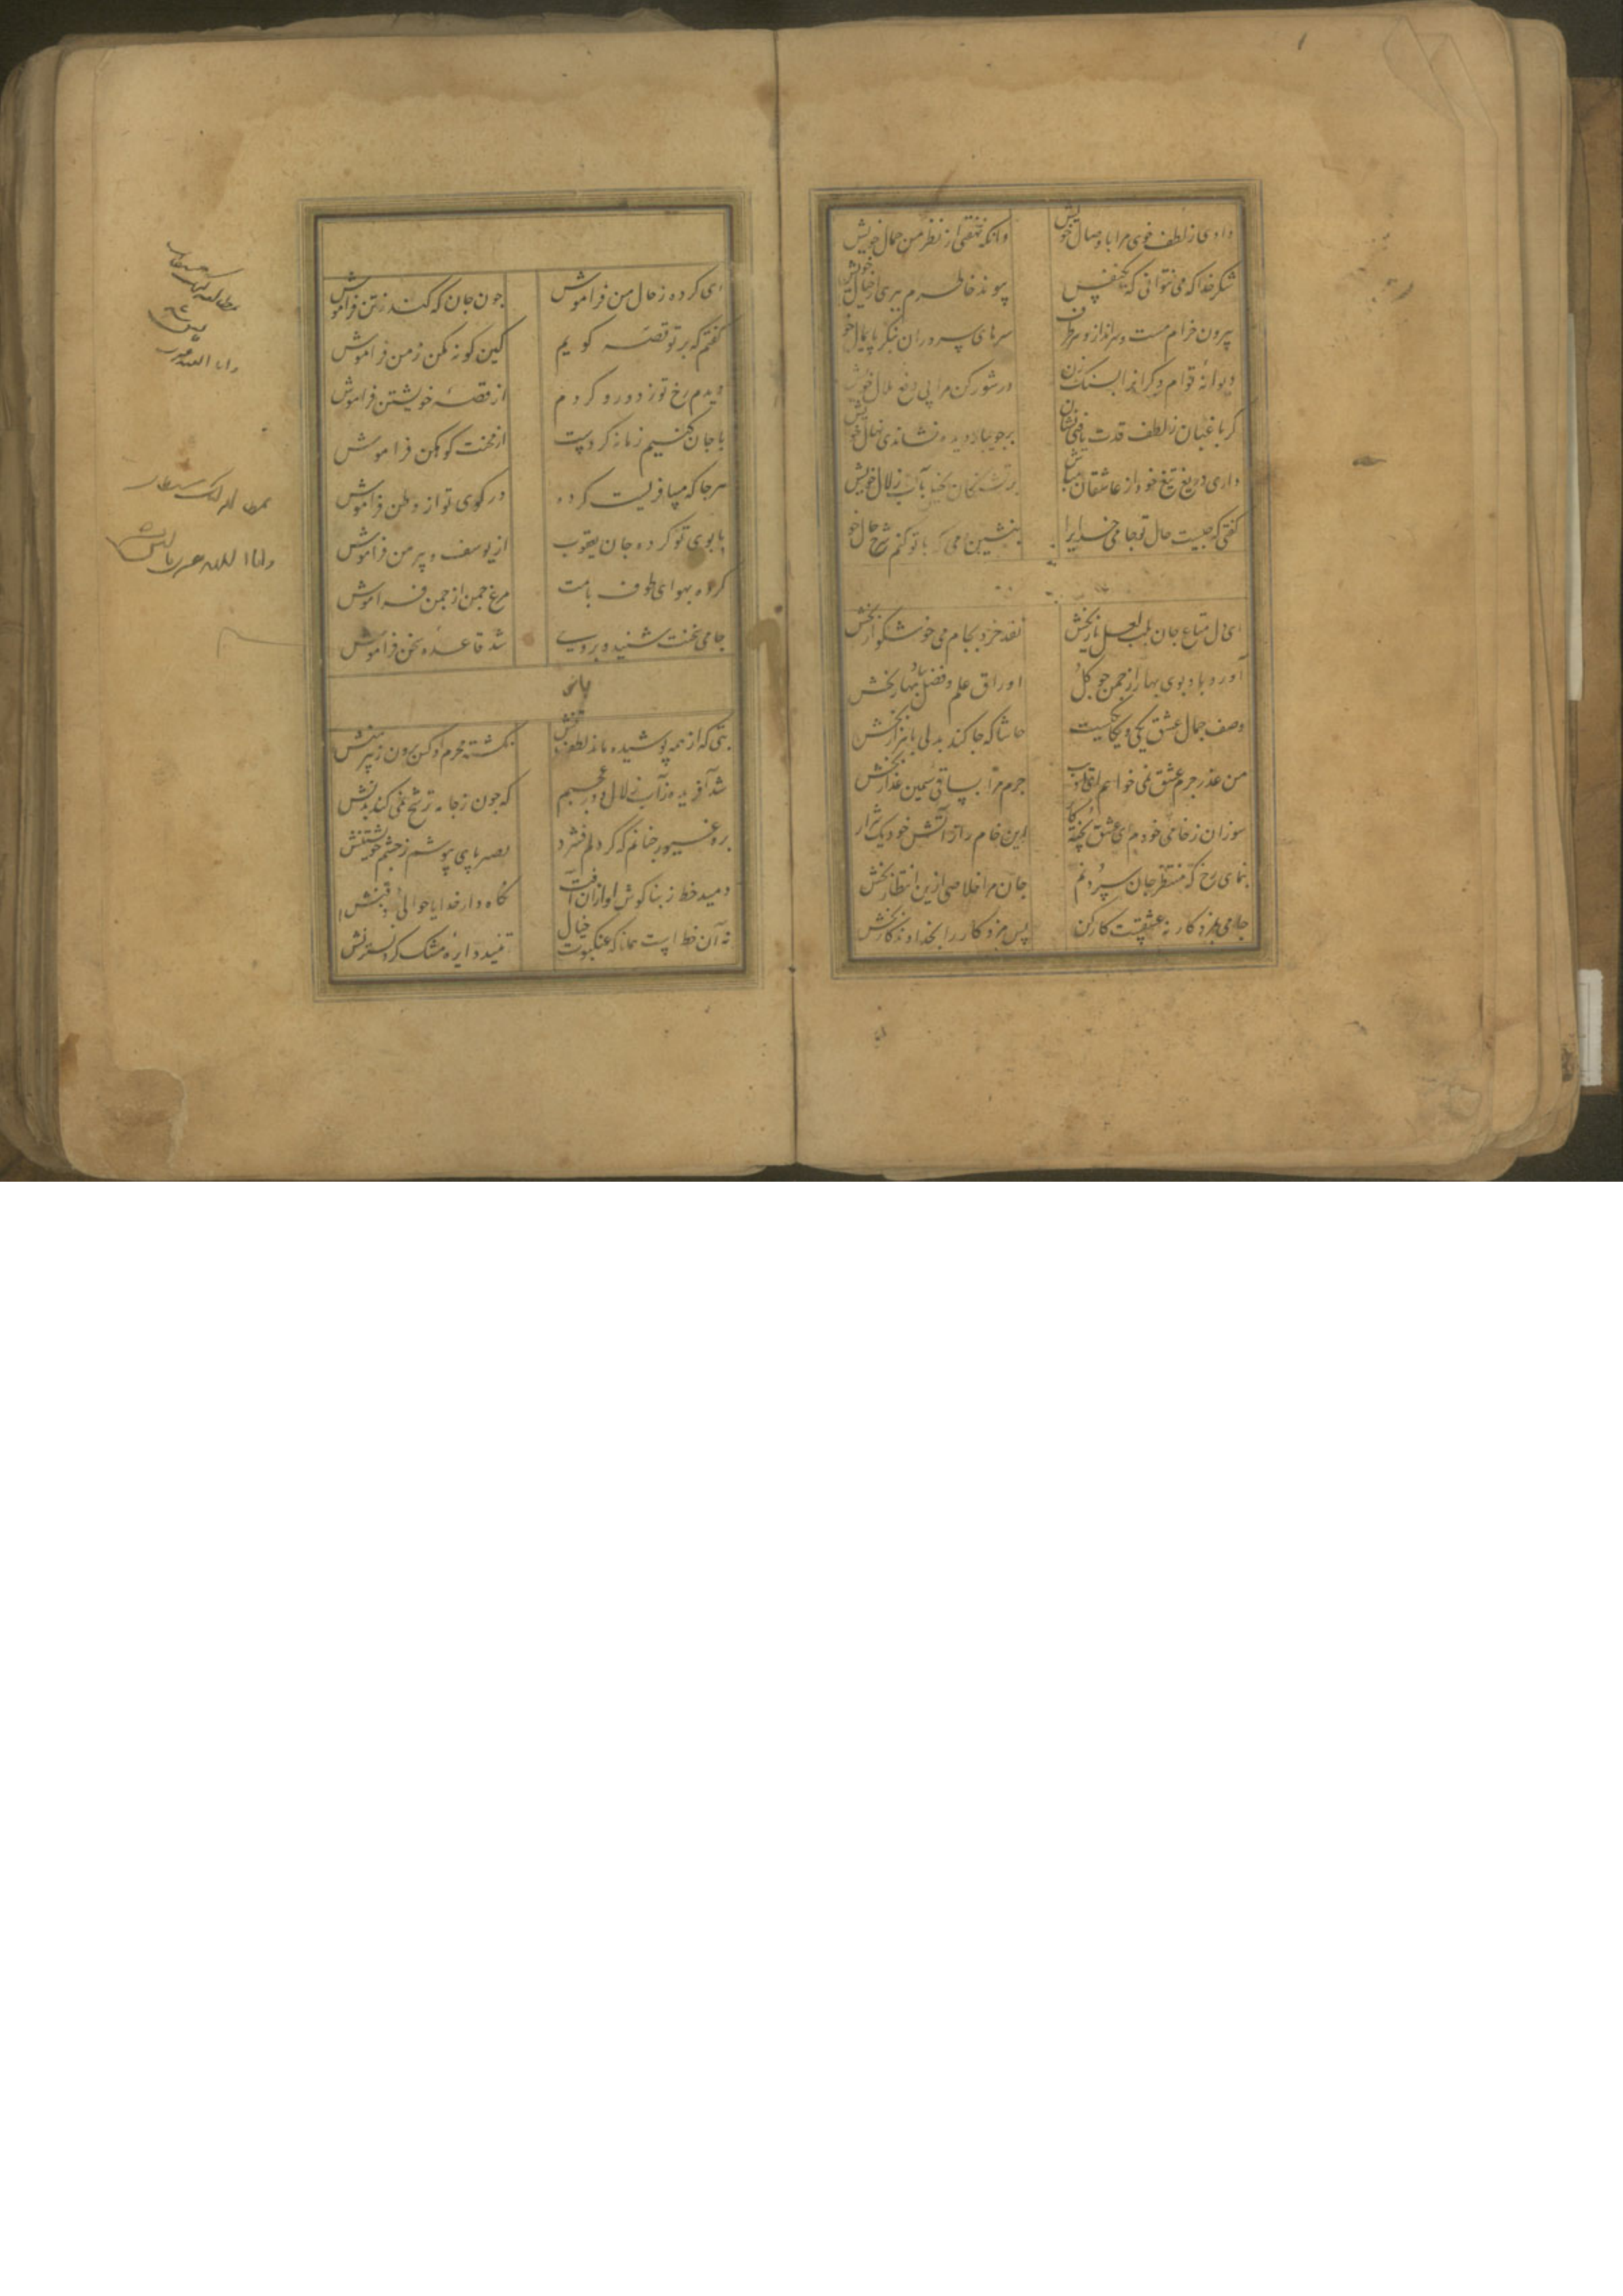 دادی ز لطف خوی مرا با وصال خویش
وانگه نهفتی از نظر من جمال خویش
شکر خدا که می نتوانی که یکنفس
پیوند خاطرم ببری از خیال خویش
بیرون خرام مست و سرانداز و هر طرف
سرهای سروران بنگر پایمال خویش
دیوانه توام دگرانرا بسنک زن
در شور کن مرا پی دفع ملال خویش
کر باغبان ز لطف قدت یافتی نشان
بر جویبار دیده نشاندی نهال خویش
داری دریغ تیغ خود از عاشقان مباش
بر تشنکان بخیل بآب زلال خویش
کفتی که چیست حال تو جامی خدایرا
بنشین دمی که با تو کنم شرح حال خو
ای دل متاع جان بلب لعل یار بخش
نقد خرد بجام می خوشکوار بخش
آورد باد بوی بهار از جمن جو کل
اوراق علم و فضل بباد بهار بخش
وصف جمال عشق یکی و یکیست
حاشا که جا کند بدلی با هزار بخش
من عذر جرم عشق نمی خواهم
جرم مرا بساقی سیمین عذار بخش
سوزان ز خامی خودم ای عشق پخته کار
این خام را ز آتش خود یک شرار
بنمای رخ که منتظر جان سپردنم
جان مرا خلاصی ازین انتظار بخش
جامی بمزد کار نه عشقیست کار کن
پس مزد کار را بخداوندکار بخش
ای کرده ز حال من فراموش
جون جان که کند ز تن فراموش
کفتم که بر تو قصه کویم
کین کونه مکن ز من فراموش
دیدم رخ تو ز دور و کردم
از قصه خویشتن فراموش
با جان کنیم زمانه کردست
از محنت کوهکن فراموش
هر جا که مسافریست کرده
در کوی تو از وطن فراموش
با بوی تو کرده جان یعقوب
از یوسف و پیرهن فراموش
کرده بهوای طوف بامت
مرغ جمن از جمن فراموش
جامی سخنت شنید و بر وی
شد قاعده سخن فراموش
بتی که از همه پوشیده ماند لطف تنش
نکشته محرم او کس برون ز پیرهنش
شد آفریده ز آب زلال و در عجبم
که جون ز جامه ترشح نمی کند بدنش
بره غیور چنانم که کر دلم فشرد
بصر بپای بپوشم ز چشم خویشتنش
دمید خط ز بناکوش او از آن آفت
نکاه دار خدایا حوالی ذقنش
نه آن خط است همانا که عنکبوت خیال
تنید دایره مشک کرد نسترنش